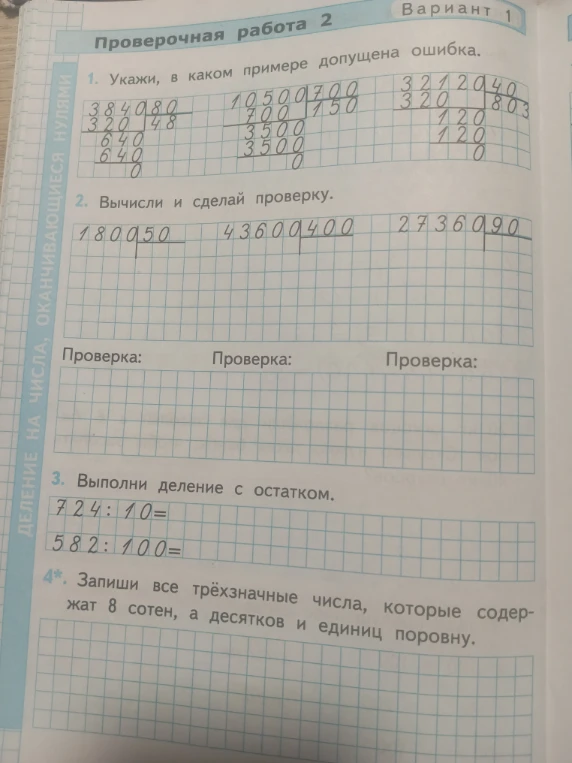 Вариант 1
Проверочная работа 2
1. Укажи, в каком примере допущена ошибка.
3840 80
320 48
640
640
0
10500 700
700 150
3500
3500
0
32120 40
320 803
120
120
0
2. Вычисли и сделай проверку.
1800 50 43600 400 27360 90
Проверка: Проверка: Проверка:
3. Выполни деление с остатком.
724 : 10 =
582 : 100 =
4*. Запиши все трёхзначные числа, которые содер-
жат 8 сотен, а десятков и единиц поровну.
ДЕЛЕНИЕ НА ЧИСЛА, ОКАНЧИВАЮЩИЕСЯ НУЛЯМИ